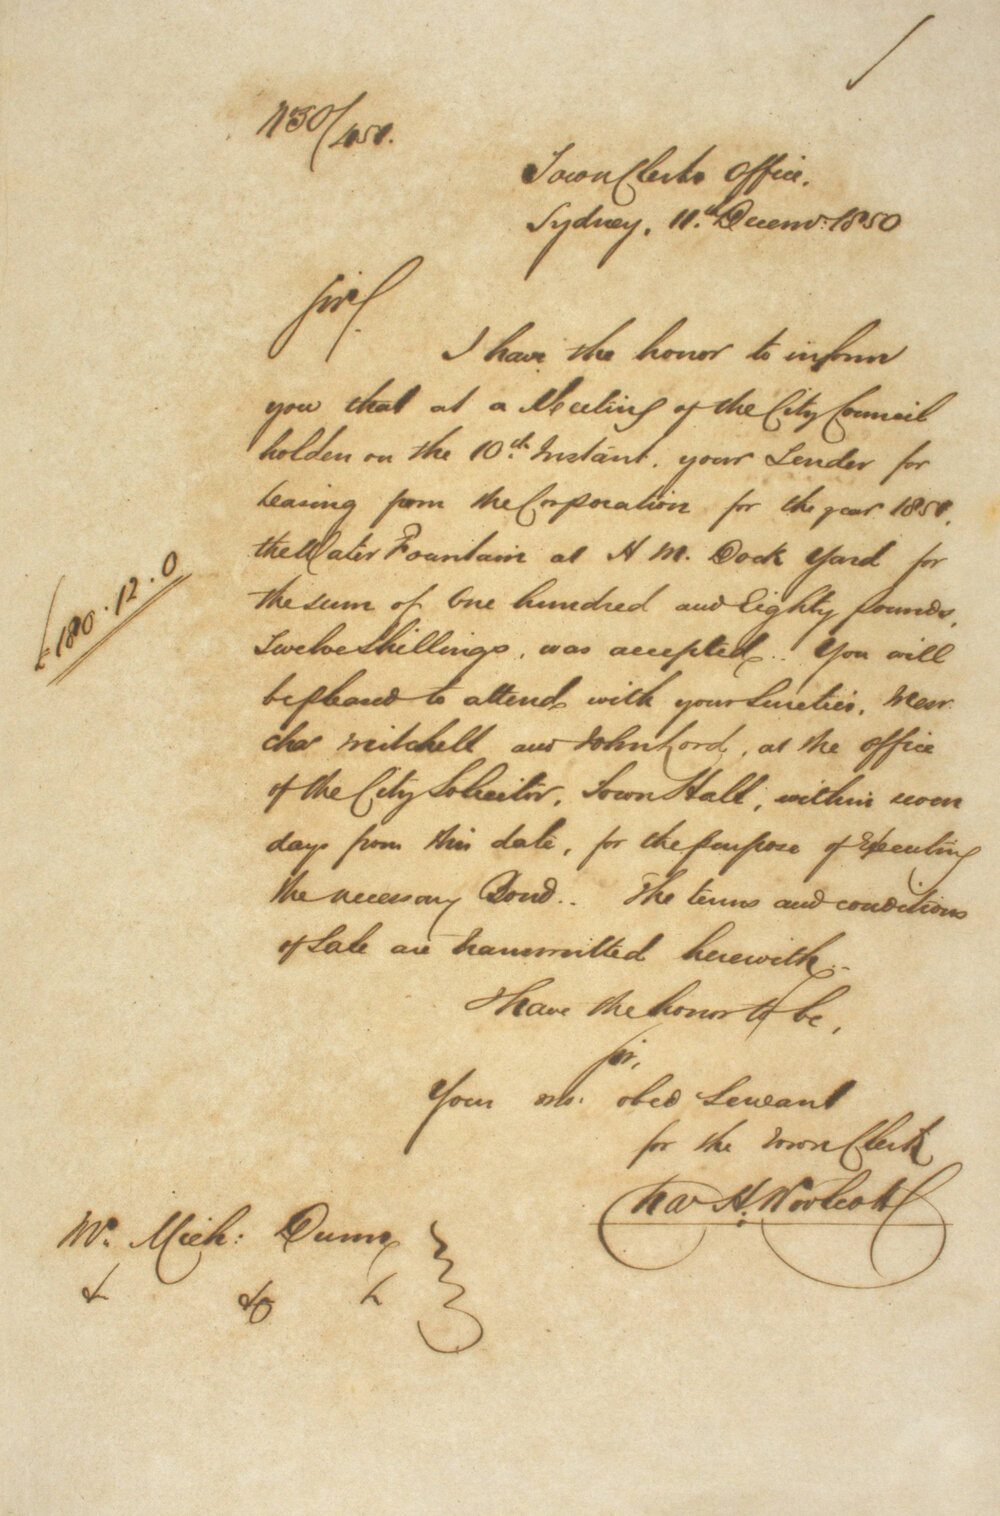 50/451.
Town Clerks Office.
Sydney, 11.th Decemr. 1850
Sir,
I have the honor to inform
you that at a Meeting of the City Council
holden on the 10th. Instant, your Tender for
Leasing from the Corporation for the year 1851,
the Water Fountain at H M. Dock Yard for
£180.12.0
the sum of One hundred and Eighty pounds,
Twelve Shillings, was accepted.. You will
be pleased to attend with your Sureties, Messr.
Chas Mitchell and John Lord, at the Office
of the City Solicitor, Town Hall, within seven
days from this date, for the purpose of Executing
the necessary Bond.. The terms and conditions
of Sale are transmitted herewith..
I have the honor to be,
Sir,
Your mo. obed Servant
for the Town Clerk
Chas H. Woolcott
Mr. Mich: Dunn
& &c &